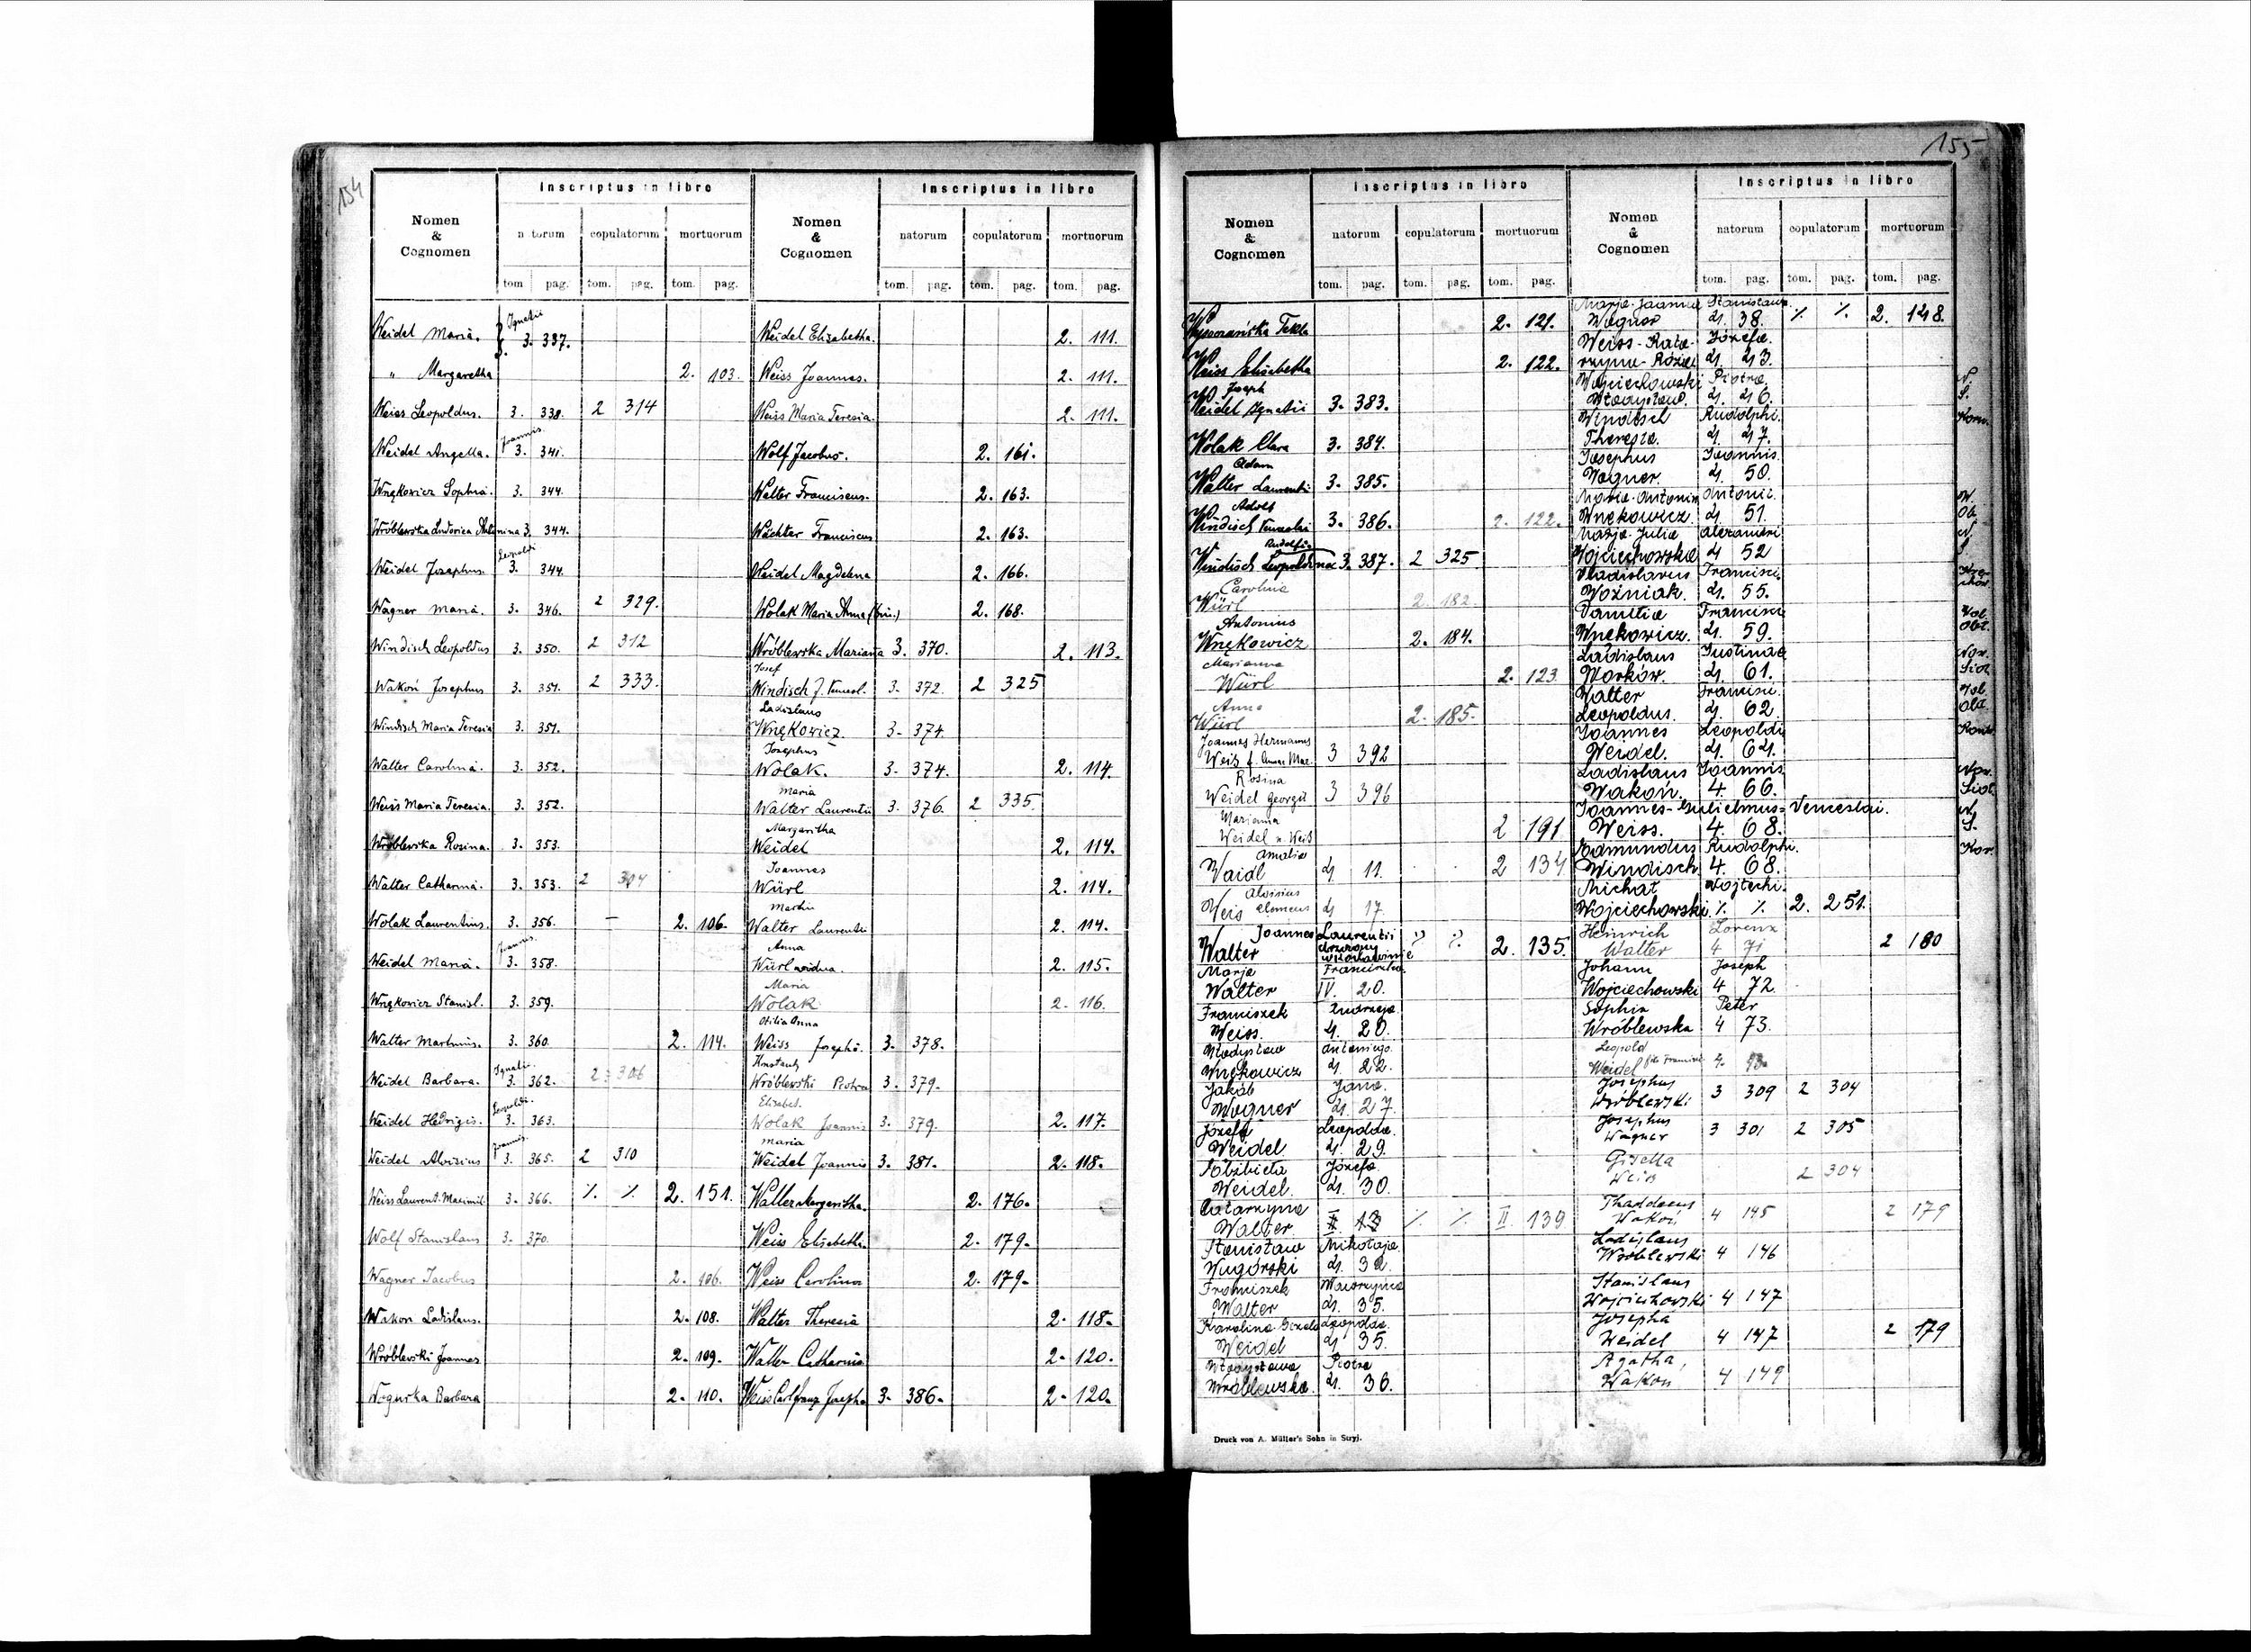 154
Inscriptus in libro
Nomen & Cognomen
natorum copulatorum mortuorum
tom. pag. tom. pag. tom. pag.
Ignatii
Weidel Maria. 3. 337.
" Margaretha 2. 103.
Weiss Leopoldus. 3. 338. 2 314
Joannis.
Weidel Angella. 3. 341.
Wnękowicz Sophia. 3. 344.
Wróblewska Ludovica Antonina 3. 344.
Leopoldi
Weidel Josephus. 3. 344.
Wagner Maria. 3. 346. 2 329.
Windisch Leopoldus 3. 350. 2 312
Wakoń Josephus 3. 351. 2 333.
Windisch Maria Teresia 3. 351.
Walter Carolina. 3. 352.
Weiss Maria Teresia. 3. 352.
Wróblewska Rosina. 3. 353.
Walter Catharina. 3. 353. 2 304
Wolak Laurentius. 3. 356. – 2. 106.
Joannis.
Weidel Maria. 3. 358.
Wnękowicz Stanisl. 3. 359.
Walter Martinus. 3. 360. 2. 114.
Ignatii.
Weidel Barbara. 3. 362. 2. 306
Leopoldi.
Weidel Hedrigis. 3. 363.
Joannis.
Weidel Aloisius 3. 365. 2 310
Weiss Laurent. Maximil. 3. 366. % % 2. 151.
Wolf Stanislaus 3. 370.
Wagner Jacobus 2. 106.
Wakoń Ladislaus. 2. 108.
Wróblewski Joannes 2. 109.
Wegurka Barbara 2. 110.
Inscriptus in libro
Nomen & Cognomen
natorum copulatorum mortuorum
tom. pag. tom. pag. tom. pag.
Weidel Elisabetha. 2. 111.
Weiss Joannes. 2. 111.
Weiss Maria Teresia. 2. 111.
Wolf Jacobus. 2. 161.
Walter Franciscus. 2. 163.
Wächter Franciscus 2. 163.
Weidel Magdalena 2. 166.
Wolak Maria Anna (bin.) 2. 168.
Wróblewska Mariana 3. 370. 2. 113.
Josef
Windisch J. Vencesl. 3. 372. 2 325
Ladislaus
Wnękowicz 3. 374.
Josephus
Wolak. 3. 374. 2. 114.
Maria
Walter Laurentii 3. 376. 2 335.
Margaritha
Weidel 2. 114.
Joannes
Würl 2. 114.
Martin
Walter Laurentii 2. 114.
Anna
Würl vidua. 2. 115.
Maria
Wolak 2. 116.
Otilia Anna
Weiss Josephi. 3. 378.
Konstanty
Wróblewski Piotra 3. 379.
Elisabet.
Wolak Joannis 3. 379. 2. 117.
Maria
Weidel Joannis 3. 381. 2. 118.
Walter Margaritha. 2. 176.
Weiss Elisabeth. 2. 179.
Weiss Carolina 2. 179.
Walter Theresia 2. 118.
Walter Catharina 2. 120.
Weiss Carl franz Joseph 3. 386. 2. 120.
155
Inscriptus in libro
Nomen & Cognomen
natorum copulatorum mortuorum
tom. pag. tom. pag. tom. pag.
Tekla 2. 121.
Weiss Elisabetha 2. 122.
Joseph
Weidel Ignatii 3. 383.
Wolak Clara 3. 384.
Adam
Walter Laurentii 3. 385.
Adolf
Windisch Venceslai 3. 386. 2. 122.
Rudolfi
Windisch Leopoldina 3. 387. 2 325
Carolina
Würl 2. 182.
Antonius
Wnękowicz 2. 184.
Marianna
Würl 2. 123.
Anna
Würl 2. 185.
Joannes Hermanus
Weis f. Annae Mar. 3 392
Rosina
Weidel Georgii 3 396
Marianna
Weidel n. Weiß 2 191
Amalia
Waidl 4 11. 2 134
Aloisius
Weis Clemens 4 17.
Joannes Laurentii
Walter % % 2. 135.
Marja Franciszka.
Walter IV. 20.
Franciszek Andrzeja
Weiss. 4. 20.
Władysław Antoniego.
Wnękowicz 4. 22.
Jakób Jana.
Wagner 4. 27.
Józefa Leopolda.
Weidel 4. 29.
Elżbieta Józefa
Weidel. 4. 30.
Catarzyna
Walter. 13 % % II. 139
Stanisław Mikołaja.
Wugórski 4. 32.
Franciszek Wawrzyńca
Walter 4. 35.
Karolina Gizela Leopolda.
Weidel 4 35.
Władysława Piotra
Wróblewska. 4. 36.
Druck von A. Müller's Sohn in Stryj.
Inscriptus in libro
Nomen & Cognomen
natorum copulatorum mortuorum
tom. pag. tom. pag. tom. pag.
Marja-Joanna Stanisława.
Wagner 4. 38. % % 2. 148.
Weiss-Kata- Józefa.
rzyna-Róża 4. 43.
Wojciechowski Piotra.
Władysław. 4. 46.
Windisch Rudolphi.
Theresia. 4. 47.
Josephus Joannis.
Wagner. 4. 50.
Maria-Antonina Antonii.
Wnękowicz. 4. 51.
Marja-Julia Alexandri
Wojciechowska 4 52
Vladislavus Francisci.
Woźniak. 4. 55.
Francisci
Wnękowicz. 4. 59.
Ladislaus Justinae
Worków. 4. 61.
Walter Francisci.
Leopoldus. 4. 62.
Joannes Leopoldi
Weidel. 4. 64.
Ladislaus Joannis
Wakoń. 4. 66.
Joannes-Gulielmus-Venceslai.
Weiss. 4. 68.
Edmundus Rudolphi.
Windisch 4. 68.
Michał Wojtechi.
Wojciechowski % % 2. 251.
Heinrich Lorenz
Walter 4 71 2 180
Johann Joseph
Wojciechowski 4 72.
Sophia Peter
Wróblewska 4 73.
Leopold
Weidel
Josephus
Wróblewski 3 309 2 304
Josephus
Wagner 3 301 2 305
Gisella
Weis 2 304
Thaddaeus
Wakoń 4 145 2 179
Ladislaus
Wróblewski 4 146
Stanislaus
Wojciechowski 4 147
Josepha
Weidel 4 147 2 179
Agatha,
Wakon 4 149